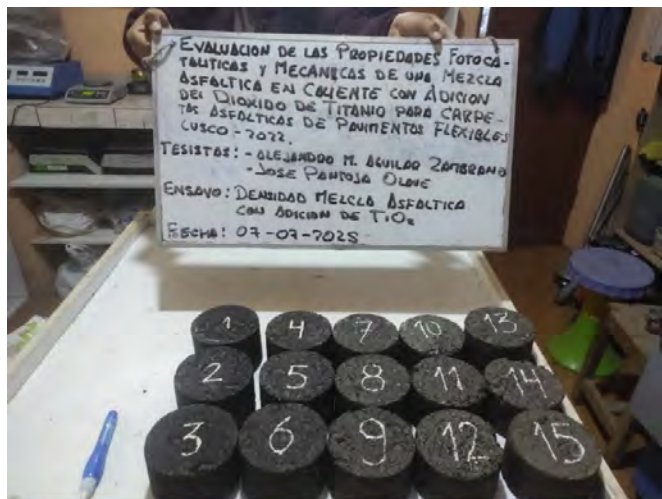 EVALUACION DE LAS PROPIEDADES FOTOCA-
TALITICAS Y MECANICAS DE UNA MEZCLA
ASFALTICA EN CALIENTE CON ADICION
DEL DIOXIDO DE TITANIO PARA CARPE-
TAS ASFALTICAS DE PAVIMENTOS FLEXIBLES
CUSCO - 2022.
TESISTAS: - ALEJANDRO M. AGUILAR ZAMBRANO
- JOSE PANTOJA OLAVE
ENSAYO: DENSIDAD MEZCLA ASFALTICA
CON ADICION DE TiO2
FECHA: 07-07-2025
1 4 7 10 13
2 5 8 11 14
3 6 9 12 15